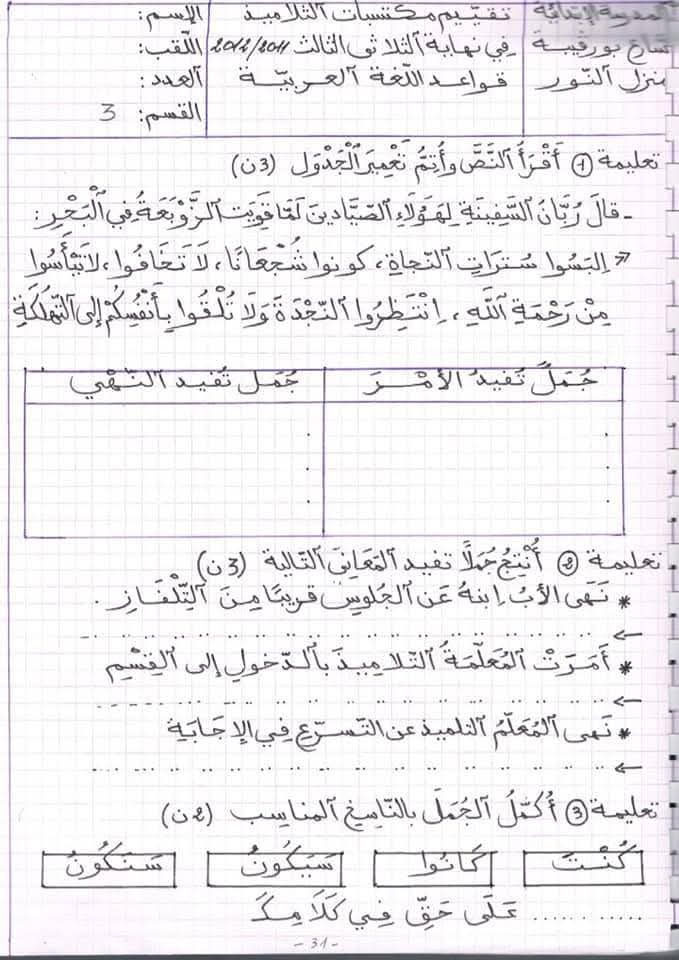 المدرسة الإبتدائية تقييم مكتسبات التلاميذ الإسم:
شارع بورقيبة في نهاية الثلاثي الثالث 2012/2011 اللقب:
منزل النور قواعد اللغة العربية العدد:
القسم: 3
تعليمة ① أَقْرَأُ النَّصَّ وأُتِمُّ تَعْمِيرَ الْجَدْوَلِ (3ن)
- قالَ رُبَّانُ السَّفِينَةِ لِهَؤُلَاءِ الصَّيَّادِينَ لَمَّا قَوِيَتِ الزَّوْبَعَةُ فِي الْبَحْرِ:
» اِلبَسُوا سُتْرَاتِ النَّجاةِ، كونوا شُجْعَانًا، لَا تَخَافُوا، لَا تَيْأَسُوا
مِنْ رَحْمَةِ اللَّهِ، اِنْتَظِرُوا النَّجْدَةَ وَلَا تُلْقُوا بِأَنْفُسِكُمْ إِلَى التَّهْلُكَةِ
جُمَلٌ تُفِيدُ الأَمْرَ جُمَل تُفيد النَّهْي
تعليمة ② أُنْتِجُ جُمَلًا تفيد المَعَانِيَ التّالية (3ن)
* نَهَى الأَبُ اِبْنهُ عَن الجُلوسِ قريبًا مِنَ التِّلْفَازِ.
* أَمَرَتْ المُعَلِّمَةُ التّلاميذَ بالدّخولِ إلى القِسْمِ
* نَهى المُعَلِّمُ التلميذ عن التّسرّعِ فِي الإِجَابَةِ
تعليمة ③ أُكَمِّلُ الجُمَلَ بالنّاسِخِ المناسب (2ن)
كُنْتَ كَانُوا سَيَكُونُ سَنَكُونُ
.......... عَلَى حَقٍّ فِي كَلَامِكَ
- 31 -